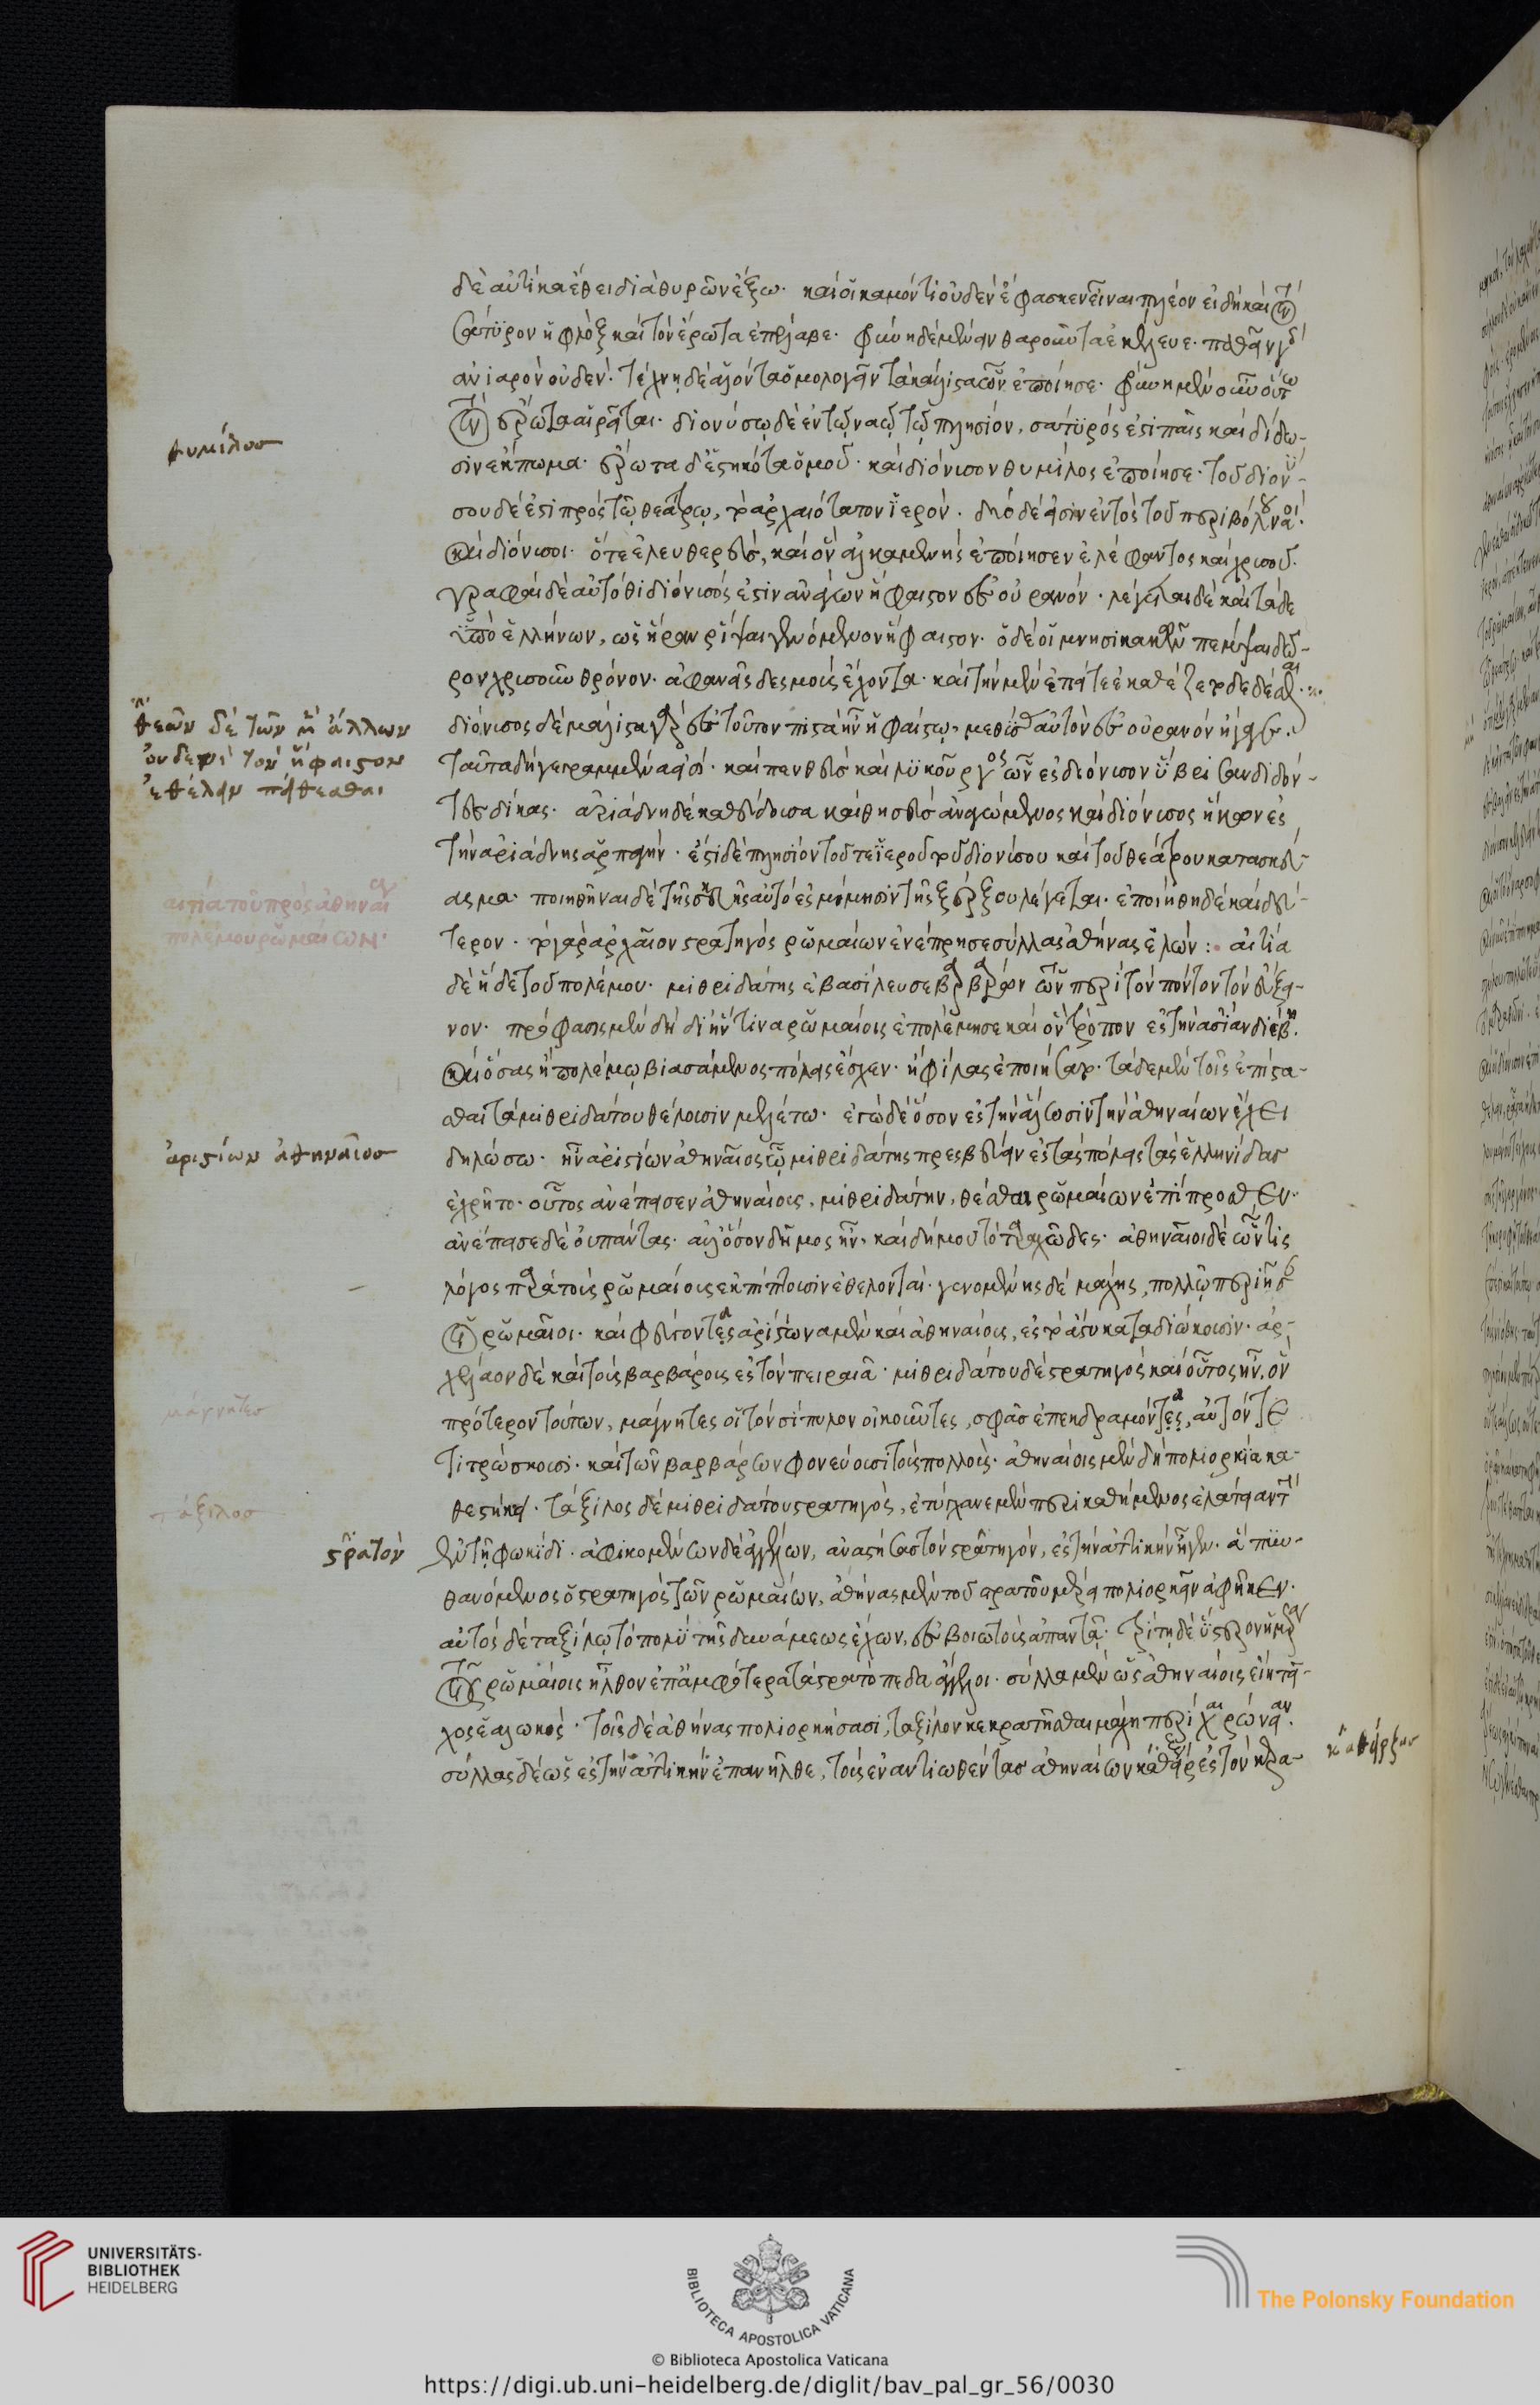 δὲ αὐτίκα ἔθει διὰ θυρῶν ἔξω· καί οἱ καμόντι οὐδὲν ἔφασκεν εἶναι πλέον εἰ δὴ καὶ τὸν
σάτυρον ἡ φλὸξ καὶ τὸν ἔρωτα ἐπέλαβε· φρύνη δὲ μένειν θαροῦντα ἐκέλευε· παθεῖν γὰρ
ἀνιαρὸν οὐδέν· τέχνῃ δὲ ἁλόντα ὁμολογεῖν τὰ κάλλιστα ὧν ἐποίησε· φρύνη μὲν οὖν οὕτω
τὸν ἔρωτα αἱρεῖται· διονύσῳ δὲ ἐν τῷ ναῷ τῷ πλησίον, σάτυρός ἐστι παῖς καὶ δίδω-
σιν ἔκπωμα· ἔρωτα δ' ἑστηκότα ὁμοῦ· καὶ διόνυσον θυμίλος ἐποίησε· τοῦ διονύ-
σου δέ ἐστι πρὸς τῷ θεάτρῳ, τὸ ἀρχαιότατον ἱερόν· δύο δέ εἰσιν ἐντὸς τοῦ περιβόλου ναοὶ·
καὶ διόνυσοι· ὅ τε ἐλευθερεύς, καὶ ὃν ἀλκαμένης ἐποίησεν ἐλέφαντος καὶ χρυσοῦ·
γραφαὶ δὲ αὐτόθι διόνυσός ἐστιν ἀνάγων ἥφαιστον ἐς οὐρανόν· λέγεται δὲ καὶ τάδε
ὑπὸ ἑλλήνων, ὡς ἥρα ῥίψαι γενόμενον ἥφαιστον· ὁ δέ οἱ μνησικακῶν πέμψαι δῶ-
ρον χρυσοῦν θρόνον· ἀφανεῖς δεσμοὺς ἔχοντα· καὶ τὴν μὲν ἐπεί τε ἐκαθέζετο δεδέσθαι·
διόνυσος δὲ μάλιστα γὰρ ἐς τοῦτον πιστὰ ἦν ἡφαίστῳ· μεθύσας αὐτὸν ἐς οὐρανὸν ἤγαγε·
ταῦτα δὴ γεγραμμένα εἰσί· καὶ πενθεὺς καὶ λυκοῦργος ὧν ἐς διόνυσον ὕβρισαν διδόν-
τες δίκας· ἀριάδνη δὲ καθεύδουσα καὶ θησεὺς ἀναγόμενος καὶ διόνυσος ἥκων ἐς
τὴν ἀριάδνης ἁρπαγήν· ἔστι δὲ πλησίον τοῦ τε ἱεροῦ τοῦ διονύσου καὶ τοῦ θεάτρου κατασκεύ-
ασμα· ποιηθῆναι δὲ τῆς σκηνῆς αὐτὸ ἐς μίμησιν τῆς ξέρξου λέγεται· ἐποιήθη δὲ καὶ δεύ-
τερον· τὸ γὰρ ἀρχαῖον στρατηγὸς ῥωμαίων ἐνέπρησε σύλλας ἀθήνας ἑλών: αἰτία
δὲ ἥδε τοῦ πολέμου· μιθριδάτης ἐβασίλευσε βαρβάρων τῶν περὶ τὸν πόντον τὸν εὔξει-
νον· πρόφασις μὲν δὴ δι' ἥντινα ῥωμαίοις ἐπολέμησε καὶ ὃν τρόπον ἐς τὴν ἀσίαν διέβη·
καὶ ὅσας ἢ πολέμῳ βιασάμενος πόλεις ἔσχεν· ἢ φίλας ἐποιήσατο· τάδε μὲν τοῖς ἐπίστα-
σθαι τὰ μιθριδάτου θέλουσιν μελέτω· ἐγὼ δὲ ὅσον ἐς τὴν ἅλωσιν τὴν ἀθηναίων ἔχει
δηλώσω· ἦν ἀριστίων ἀθηναῖος ᾧ μιθριδάτης πρεσβεύειν ἐς τὰς πόλεις τὰς ἑλληνίδας
ἐχρῆτο· οὗτος ἀνέπεισεν ἀθηναίους, μιθριδάτην, θέσθαι ῥωμαίων ἐπίπροσθεν·
ἀνέπεισε δὲ οὐ πάντας· ἀλλ' ὅσον δῆμος ἦν· καὶ δήμου τὸ ταραχῶδες· ἀθηναῖοι δὲ ὧν τις
λόγος παρὰ τοὺς ῥωμαίους ἐκπίπτουσιν ἐθελονταί· γενομένης δὲ μάχης, πολλῷ περιῆσαν
οἱ ῥωμαῖοι· καὶ φεύγοντας ἀριστίωνα μὲν καὶ ἀθηναίους, ἐς τὸ ἄστυ καταδιώκουσιν· ἀρ-
χέλαον δὲ καὶ τοὺς βαρβάρους ἐς τὸν πειραιᾶ· μιθριδάτου δὲ στρατηγὸς καὶ οὗτος ἦν, ὃν
πρότερον τούτων, μάγνητες οἱ τὸν σίπυλον οἰκοῦντες, σφᾶς ἐπεκδραμόντας, αὐτόν τε
τιτρώσκουσι· καὶ τῶν βαρβάρων φονεύουσι τοὺς πολλούς· ἀθηναίοις μὲν δὴ πολιορκία κα-
θεστήκει· τάξιλος δὲ μιθριδάτου στρατηγὸς, ἐτύγχανε μὲν περικαθήμενος ἐλάτειαν τὴν
ἐν τῇ φωκίδι· ἀφικομένων δὲ ἀγγέλων, ἀναστήσας τὸν στρατηγόν, ἐς τὴν ἀττικὴν ἦγεν· ἃ πυν-
θανόμενος ὁ στρατηγὸς τῶν ῥωμαίων, ἀθήνας μὲν τοῦ στρατοῦ μέρει πολιορκεῖν ἀφῆκεν·
αὐτὸς δὲ ταξίλῳ τὸ πολὺ τῆς δυνάμεως ἔχων, ἐς βοιωτοὺς ἀπαντᾷ· τρίτῃ δὲ ὕστερον ἡμέρᾳ
τοῖς ῥωμαίοις ἦλθον ἐπ' ἀμφότερα τὰ στρατόπεδα ἄγγελοι· σύλλα μὲν ὡς ἀθηναίοις εἴη τὸ τεῖ-
χος ἑαλωκός· τοῖς δὲ ἀθήνας πολιορκήσασι, ταξίλον κεκρατῆσθαι μάχῃ περὶ χαιρώνειαν·
σύλλας δὲ ὡς ἐς τὴν ἀττικὴν ἐπανῆλθε, τοὺς ἐναντιωθέντας ἀθηναίων καθεῖρξες τὸν κερα-
θυμίλος
θεῶν δὲ τῶν μὲν ἄλλων
οὐδενὶ τὸν ἥφαιστον
ἐθέλειν πείθεσθαι
αἰτία τοῦ πρὸς ἀθηναί
πολέμου ῥωμαίων·
ἀριστίων ἀθηναῖος
μαγνῆτες
τάξιλος
στρατὸν
καθεῖρξεν
UNIVERSITÄTS-
BIBLIOTHEK
HEIDELBERG
BIBLIOTECA APOSTOLICA VATICANA
The Polonsky Foundation
© Biblioteca Apostolica Vaticana
https://digi.ub.uni-heidelberg.de/diglit/bav_pal_gr_56/0030